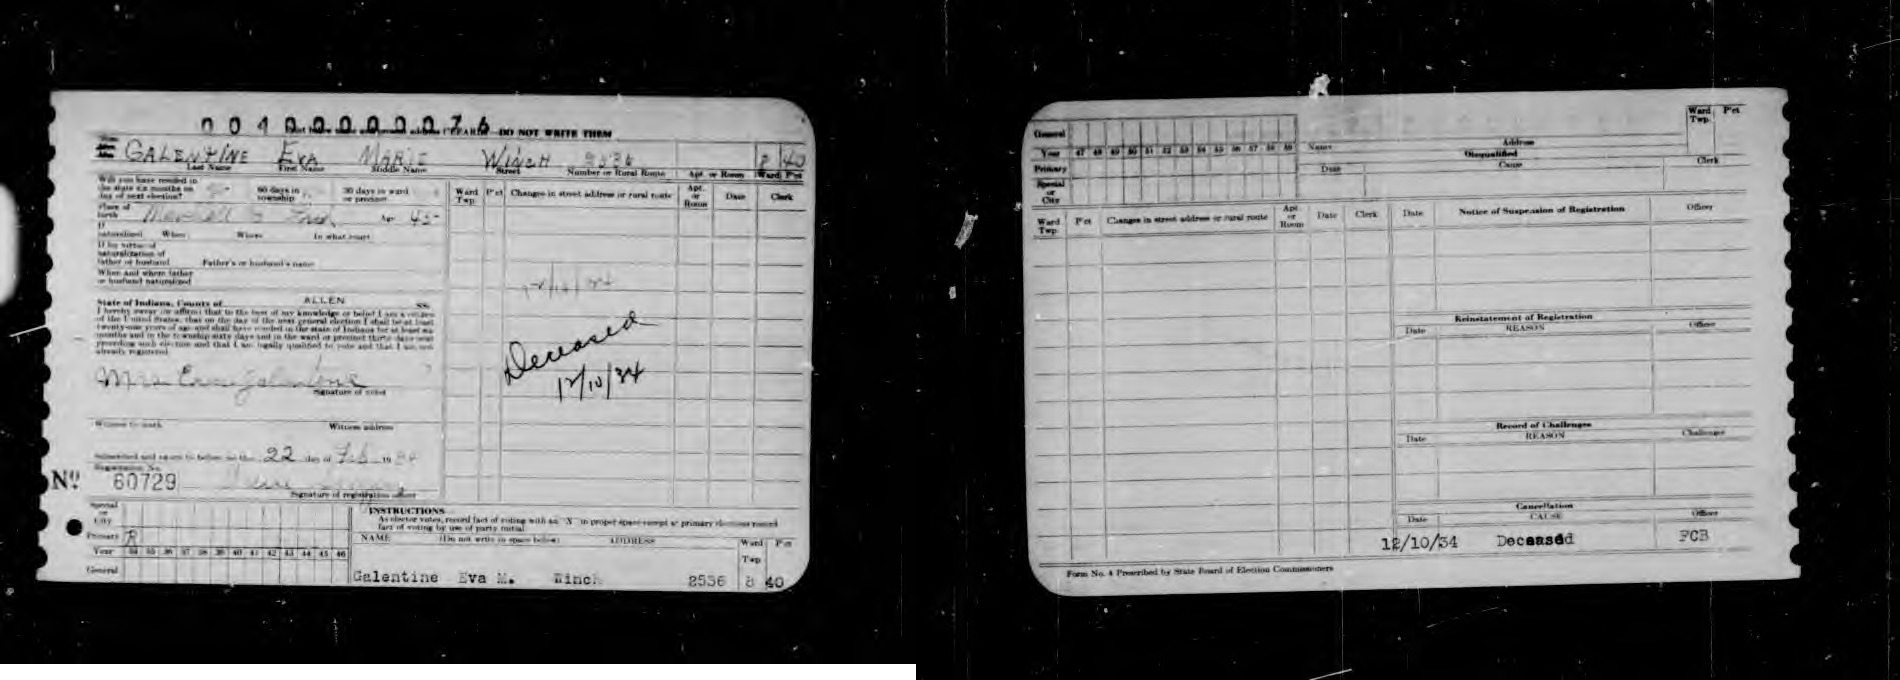 0040000000076
DO NOT WRITE THEM
GALENTINE EVA MARIE WINCH 2536 8 40
Last Name First Name Middle Name Street Number or Rural Route Apt. or Room Ward P'ct
Will you have resided in
the state six months on
day of next election?
60 days in
township
30 days in ward
or precinct
Place of
birth Age 45
If
naturalized When Where In what court
If by virtue of
naturalization of
father or husband Father's or husband's name
When and where father
or husband naturalized
State of Indiana, County of ALLEN SS.
I hereby swear (or affirm) that to the best of my knowledge or belief I am a citizen
of the United States, that on the day of the next general election I shall be at least
twenty-one years of age and shall have resided in the state of Indiana for at least six
months and in the township sixty days and in the ward or precinct thirty days next
preceding such election and that I am legally qualified to vote and that I am not
already registered.
Mrs Eva Galentine
Signature of voter
Witness to mark Witness address
Subscribed and sworn to before me this 22 day of Feb 1934
Registration No.
No 60729
Signature of registration officer
Ward
Twp. P'ct Changes in street address or rural route Apt.
or
Room Date Clerk
12/10/34
Deceased
12/10/34
Special
or
City
Primary R
Year 34 35 36 37 38 39 40 41 42 43 44 45 46
General
INSTRUCTIONS
As elector votes, record fact of voting with an "X" in proper space except at primary elections record
fact of voting by use of party initial.
NAME (Do not write in space below) ADDRESS Ward
Twp P'ct
Galentine Eva M. Winch 2536 8 40
General
Year 47 48 49 50 51 52 53 54 55 56 57 58 59
Primary
Special
or
City
Name Address
Ward
Twp. P'ct
Disqualified
Date Cause Clerk
Ward
Twp. P'ct Changes in street address or rural route Apt.
or
Room Date Clerk
Date Notice of Suspension of Registration Officer
Reinstatement of Registration
Date REASON Officer
Record of Challenges
Date REASON Challenger
Cancellation
Date CAUSE Officer
12/10/34 Deceased FCB
Form No. 4 Prescribed by State Board of Election Commissioners